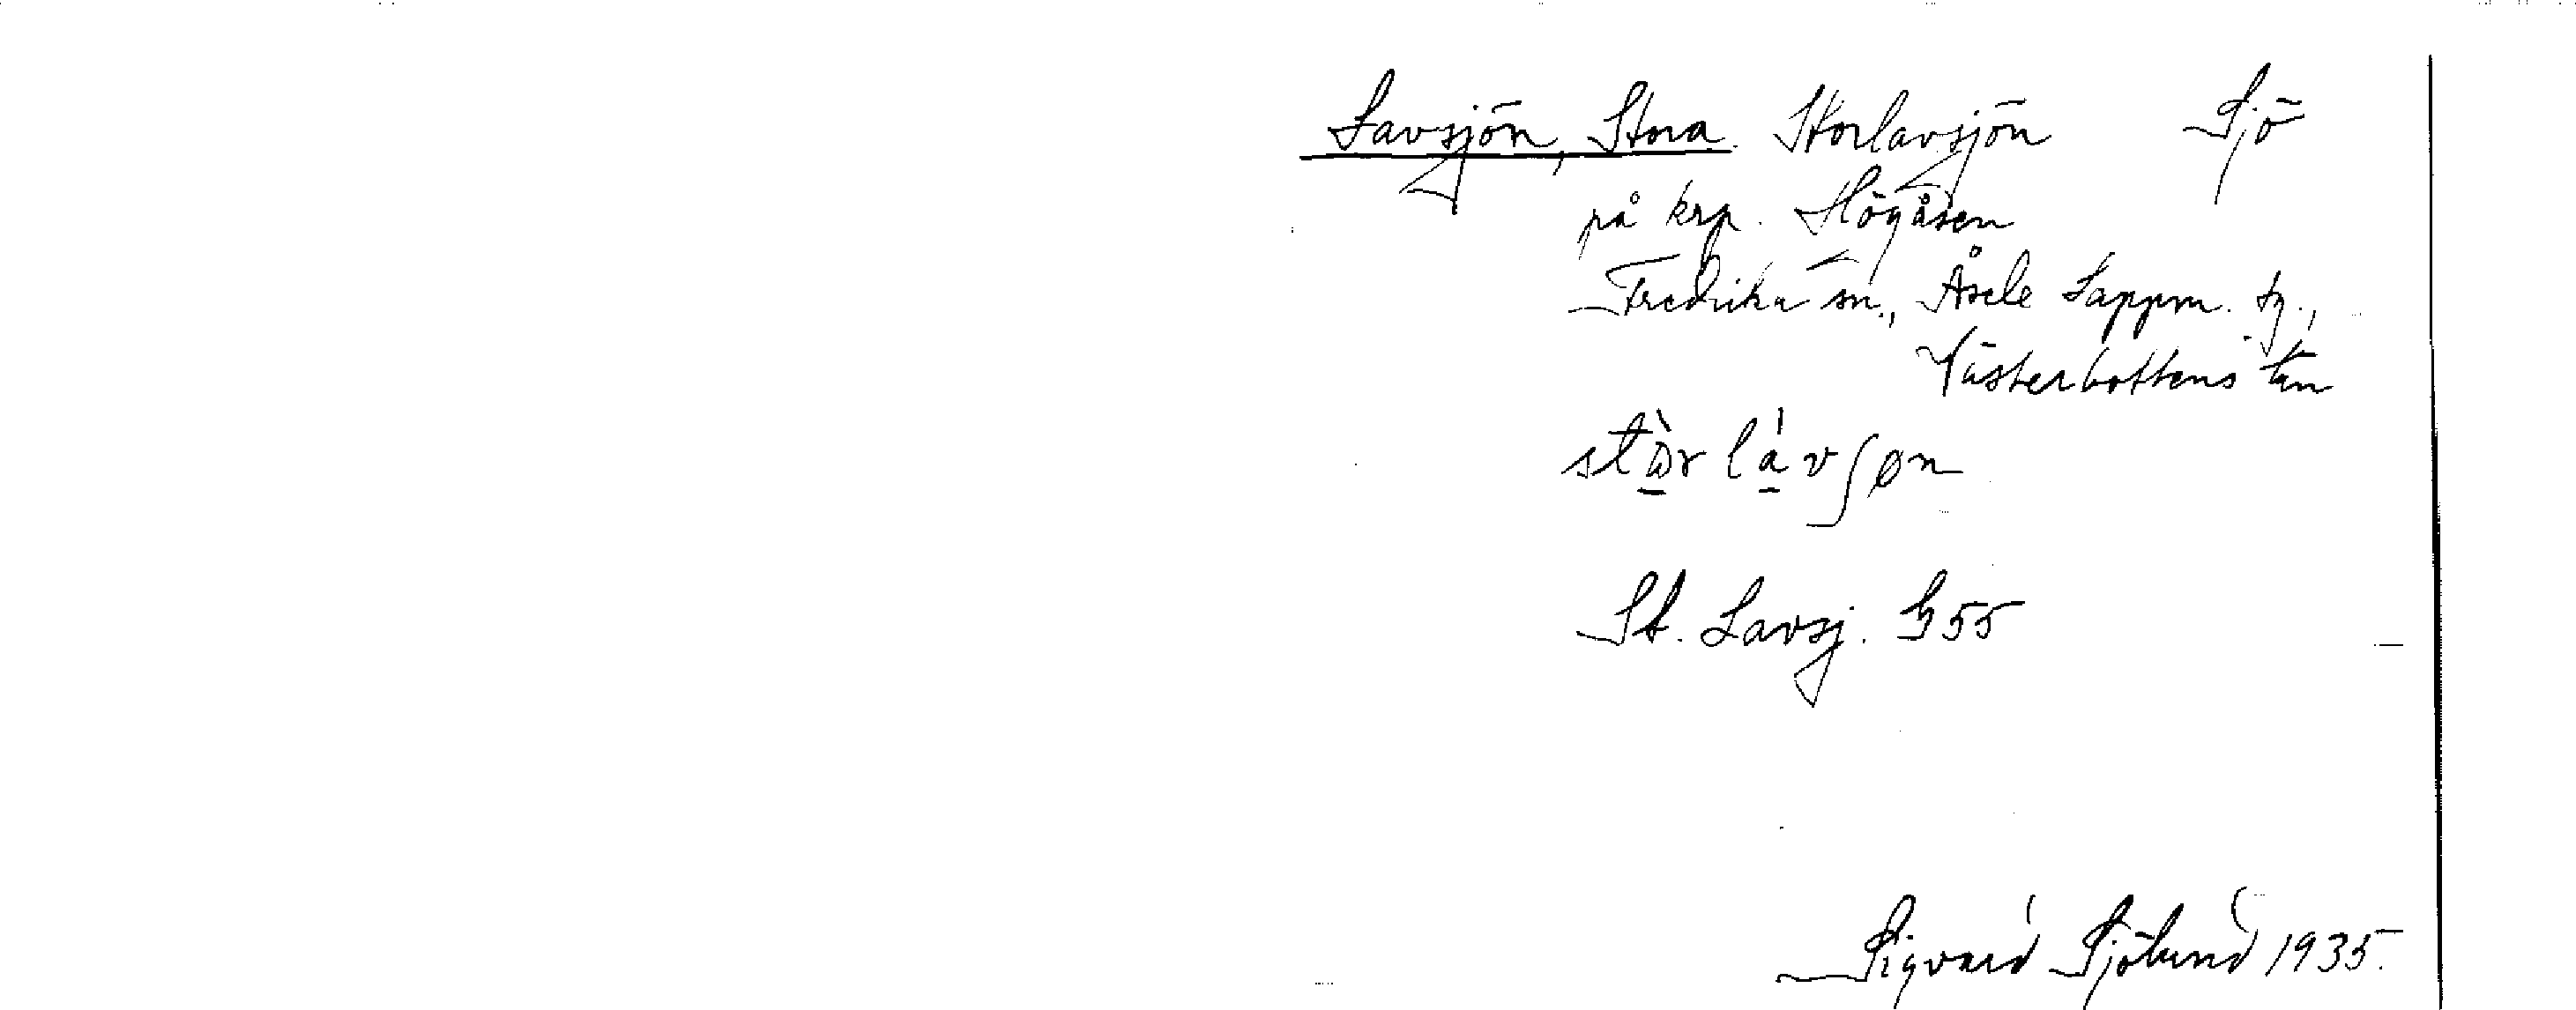 Lavsjön, Stora. Storlavsjön Sjö
på krp. Högåsen
Fredrika sn., Åsele Lappm. tg.,
Västerbottens län
stɷ̱̀r lá̱vʃøn
St. Lavsj. G55
Sigvard Sjölund 1935.